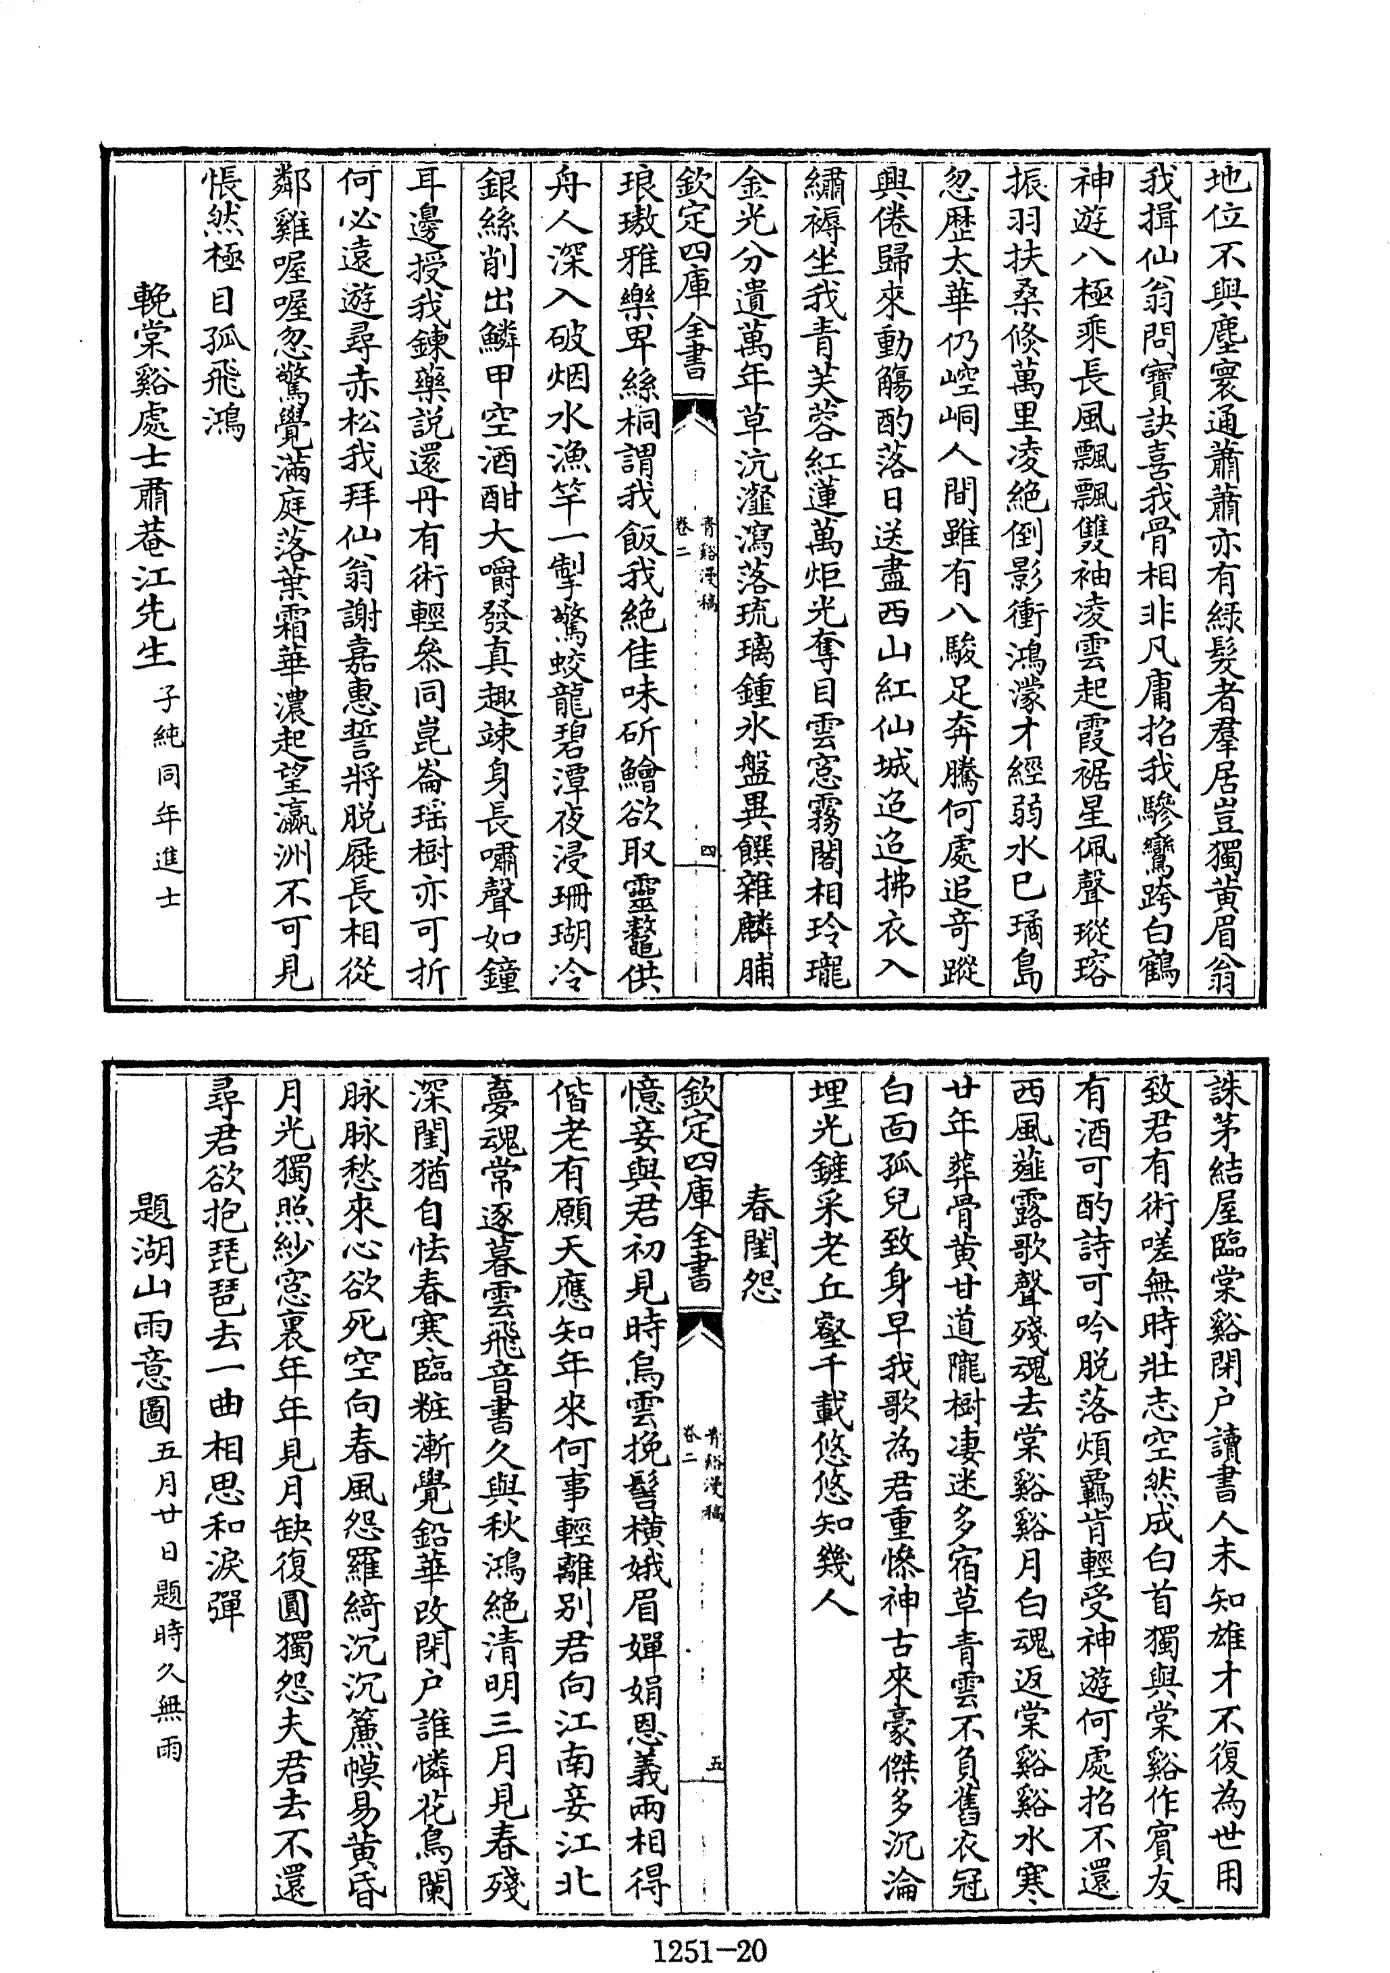 地位不與塵寰通蕭蕭亦有緑髮者羣居豈獨黄眉翁
我揖仙翁問寶訣喜我骨相非凡庸招我驂鸞跨白鶴
神遊八極乘長風飄飄雙袖凌雲起霞裾星佩聲瑽瑢
振羽扶桑倐萬里凌絶倒影衝鴻濛才經弱水已璚島
忽歴太華仍崆峒人間雖有八駿足奔騰何處追竒蹤
興倦歸來動觴酌落日送盡西山紅仙城迢迢拂衣入
繡褥坐我青芙蓉紅蓮萬炬光奪目雲窓霧閣相玲瓏
金光分遺萬年草沆瀣瀉落琉璃鍾氷盤異饌雜麟脯
欽定四庫全書
青谿漫稿
卷二
四
琅璈雅樂卑絲桐謂我飯我絶佳味斫鱠欲取靈鼇供
舟人深入破烟水漁竿一掣驚蛟龍碧潭夜浸珊瑚冷
銀絲削出鱗甲空酒酣大嚼發真趣竦身長嘯聲如鐘
耳邊授我鍊藥説還丹有術輕叅同崑崙瑶樹亦可折
何必遠遊尋赤松我拜仙翁謝嘉惠誓將脱屣長相從
鄰雞喔喔忽驚覺滿庭落葉霜華濃起望瀛洲不可見
悵然極目孤飛鴻
輓棠谿處士肅菴江先生子純同年進士
誅茅結屋臨棠谿閉户讀書人未知雄才不復為世用
致君有術嗟無時壯志空然成白首獨與棠谿作賓友
有酒可酌詩可吟脱落煩羈肯輕受神遊何處招不還
西風薤露歌聲殘魂去棠谿谿月白魂返棠谿谿水寒
廿年葬骨黄甘道隴樹凄迷多宿草青雲不負舊衣冠
白面孤兒致身早我歌為君重慘神古來豪傑多沉淪
埋光鏟采老丘壑千載悠悠知幾人
春閨怨
欽定四庫全書
青谿漫稿
卷二
五
憶妾與君初見時烏雲挽髻横娥眉嬋娟恩義兩相得
偕老有願天應知年來何事輕離别君向江南妾江北
夢魂常逐暮雲飛音書久與秋鴻絶清明三月見春殘
深閨猶自怯春寒臨粧漸覺鉛華改閉户誰憐花鳥闌
脉脉愁來心欲死空向春風怨羅綺沉沉簾幙易黄昏
月光獨照紗窓裏年年見月缺復圓獨怨夫君去不還
尋君欲抱琵琶去一曲相思和淚彈
題湖山雨意圖五月廿日題時久無雨
1251-20